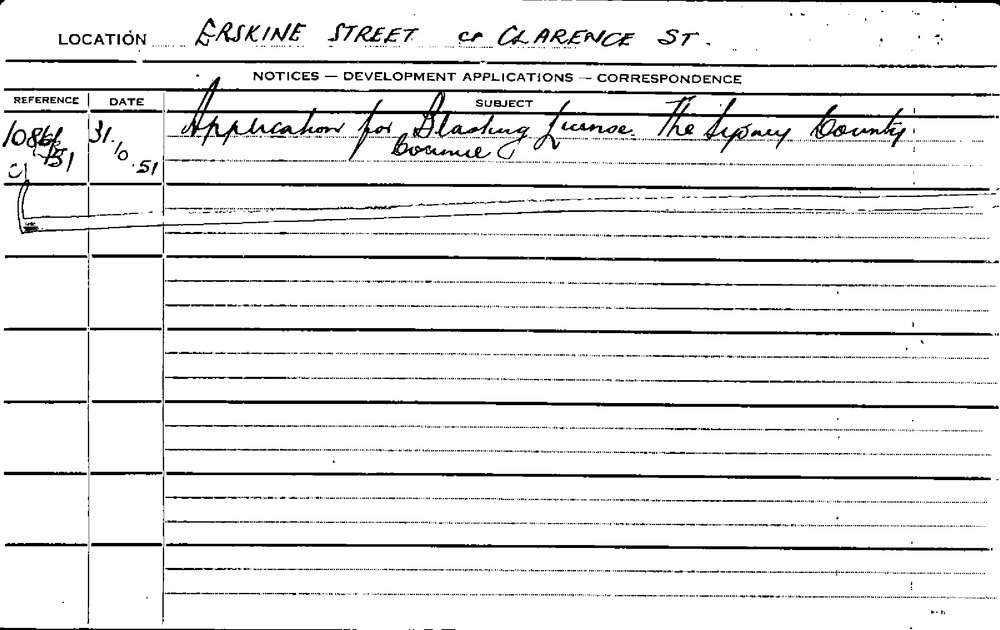 LOCATION ERSKINE STREET cr CLARENCE ST.
NOTICES — DEVELOPMENT APPLICATIONS — CORRESPONDENCE
REFERENCE DATE SUBJECT
31.10.51 Application for Blasting License. The Sydney County
Council